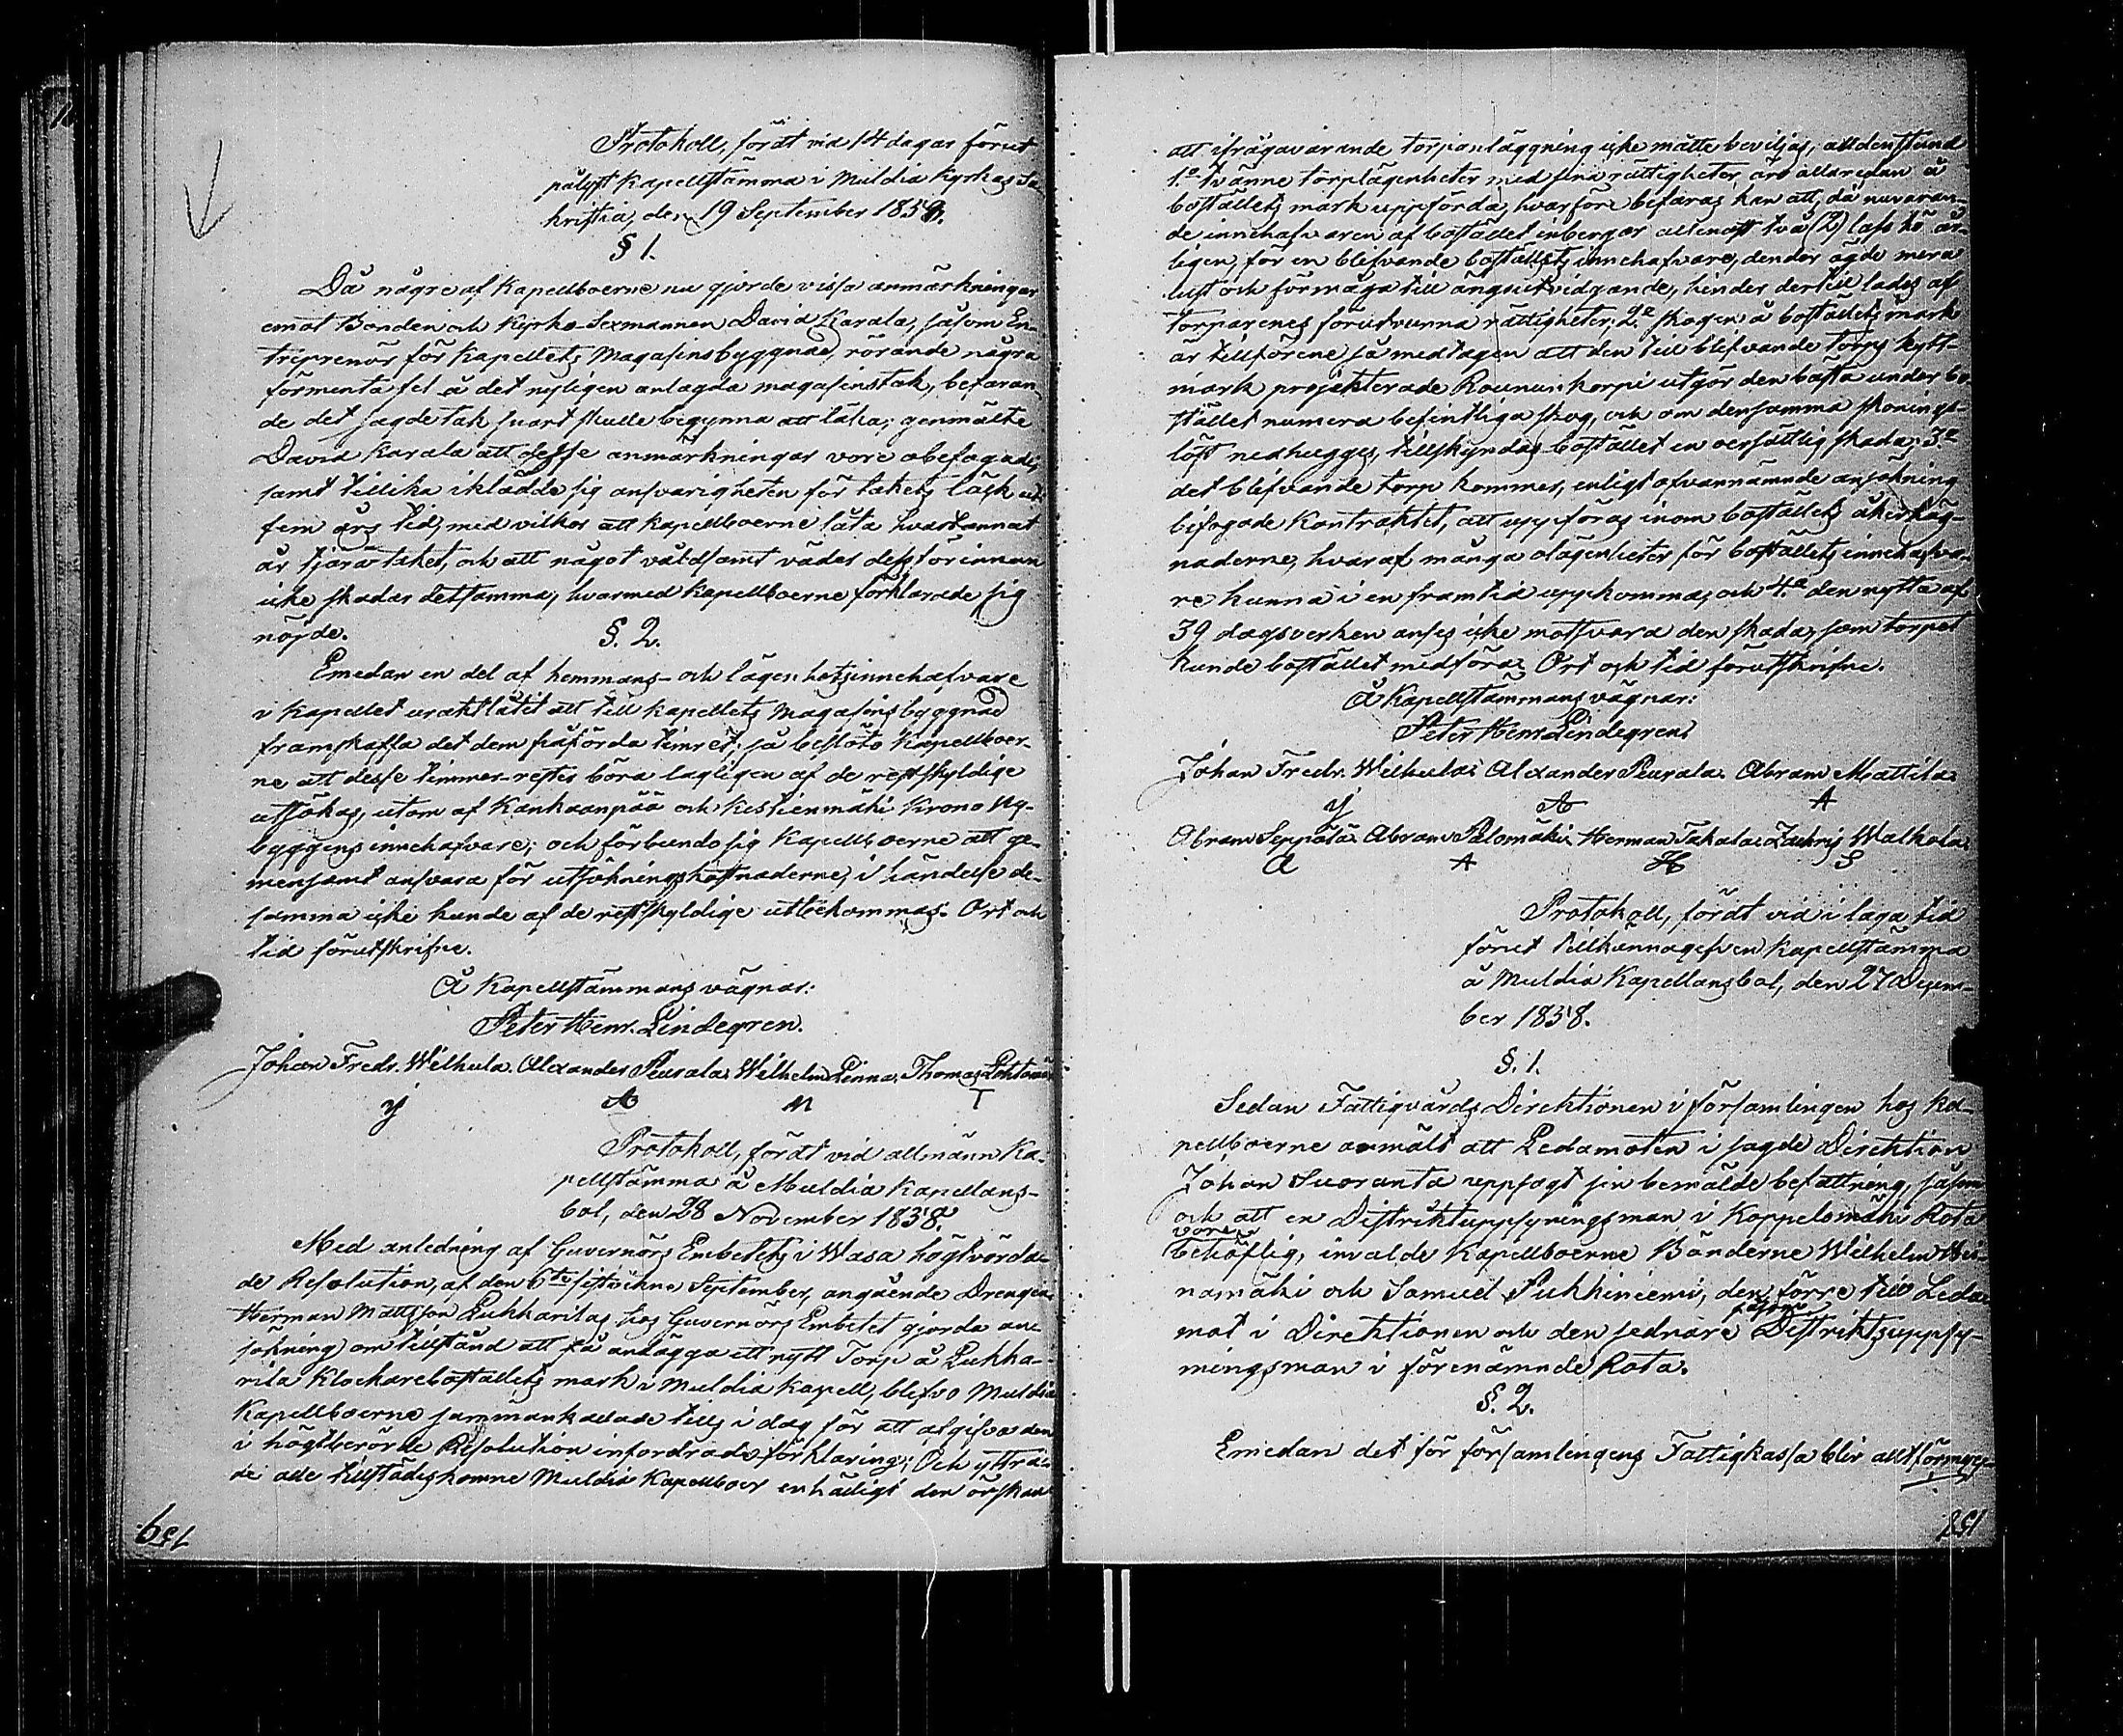 Protokoll, fördt vid 14 dagar förut
pålyst Kapellstämma i Muldia Kyrkas Sa-
kristia, den 19 September 1838.
§ 1.
Då någre af Kapellboerne nu gjorde vissa anmärkningar
emot Bonden och Kyrko-Sexmannen David Karala, såsom En-
treprenör för Kapellets Magasinsbyggnad, rörande några
förmenta fel å det nyligen anlagda magasinstak, befaran-
de det sagde tak snart skulle begynna att läka; genmälte
David Karala att desse anmärkningar vore obefogade,
samt tillika iklädde sig ansvarigheten för takets läck
fem års tid, med vilkor att Kapellboerne låta hvartannat
år tjära taket, och att något våldsamt väder dessförinnan
icke skadar detsamma, hvarmed Kapellboerne förklarade sig
nöjde.
§. 2.
Emedan en del af hemmans- och lägenhetsinnehafvare
i Kapellet uraktlåtit att till Kapellets Magasins byggnad
framskaffa det dem påförda timret; så beslöto Kapellboer-
ne att desse timmer-rester böra lagligen af de restskyldige
utsökas, utom af Kankaanpää och Kestienmäki Krono Ny-
byggens innehafvare; och förbundo sig Kapellboerne att ge-
mensamt ansvara för utsökningskostnaderne, i händelse de-
samma icke kunde af de restskyldige utbekommas. Ort och
tid förutskrifne.
Å Kapellstämmans vägnar:
Peter Henr. Lindegren.
Johan Fredr. Wilkula. Alexander Peurala. Wilhelm Pinna. Thomas
y A m T
Protokoll, fördt vid allmänn Ka-
pellstämma å Muldia Kapellans-
bol, den 28 November 1838.
Med anledning af Guvernörs Embetets i Wasa högtvörda-
de Resolution, af den 6te sistvikne September, angående Drengen
Herman Mattsson Lukkarilas hos Guvernörs Embetet gjorda an-
sökning om tillstånd att få anlägga ett nytt Torp å Lukka-
rila Klockarebostället mark i Muldia Kapell, blefvo Muldia
Kapellboerne sammankallade tills i dag för att afgifva den
i högtberörde Resolution infordrade förklaring; Och yttra-
de alle tillstädeskomne Muldia Kapellboer enhälligt den önskan
159
att ifrågavarande torpanläggning icke måtte beviljas, alldenstund
1.o tvänne torplägenheter med sina rättigheter äro allaredan å
boställets mark uppförda, hvarföre befaras kan att, då nuvaran-
de innehafvaren af bostället inbergar allenast två (2) lass hö år-
ligen, för en blifvande boställets innehafvare, den der ägde mera
lust och förmåga till ängsutvidgande, hinder dertill lades af
torparenes förutvunna rättigheter; 2.o skogen å boställets mark
är tillförene så medtagen att den till blifvande torps kytt-
mark projekterade Rounun korpi utgör den bästa under bo-
stället numera befintliga skog, och om densamma skonings-
löst nedhugges, tillskyndas bostället en oersättlig skada; 3.o
det blifvande torp kommer, enligt ofvannämnde ansökning
bifogade Kontraktet, att uppföras inom boställets åkerhäg-
naderne, hvaraf många olägenheter för boställets innehafva-
re kunna i en framtid uppkomma; och 4.o den nytta af
39 dagsverken anses icke motsvara den skada, som torpet
kunde bostället medföra. Ort och tid förutskrifne.
Å Kapellstämmans vägnar:
Peter Henr. Lindegren.
Johan Fredr. Wilkula. Alexander Peurala. Abram Mattila.
y A A
Abram Seppälä. Abram Palomäki. Herman Takala. Zachris Walkola.
A A H S
Protokoll, fördt vid i laga tid
förut tillkännagifven Kapellstämma
å Muldia Kapellansbol, den 27 Decem-
ber 1838.
§. 1.
Sedan Fattigvårds Direktionen i församlingen hos Ka-
pellboerne anmält att Ledamoten i sagde Direktion
Johan Suoranta uppsagt sin bemälde befattning, såsom
och att en Distriktsuppsyningsman i Koppelomäki Rota
vore
behöflig, invalde Kapellboerne Bönderne Wilhelm Hei-
namäki och Samuel Pukkiniemi, den förre till Leda-
såsom
mot i Direktionen och den sednare Distriktsuppsy-
ningsman i förenämnde Rota.
§. 2.
Emedan det för församlingens Fattigkassa blir allt för myc-
158